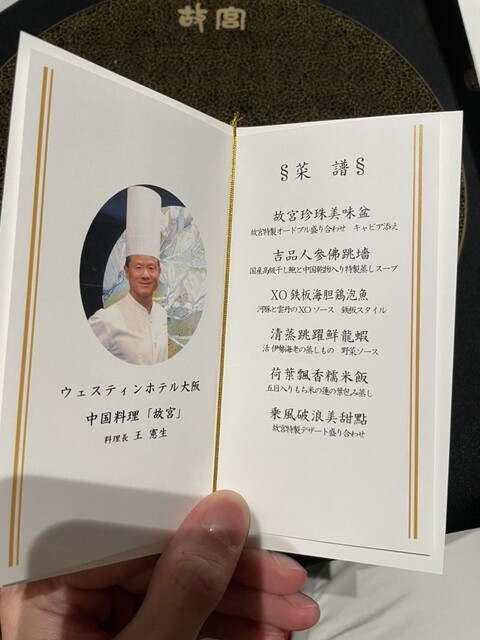 故宮
ウェスティンホテル大阪
中国料理「故宮」
料理長 王 憲生
§菜 譜§
故宮珍珠美味盆
故宮特製オードブル盛り合わせ キャビア添え
吉品人参佛跳墻
国産高級干し鮑と中国乾物入り特製蒸しスープ
XO鉄板海胆鶏泡魚
河豚と雲丹のXOソース 鉄板スタイル
清蒸跳躍鮮龍蝦
活伊勢海老の蒸しもの 野菜ソース
荷葉飄香糯米飯
五目入りもち米の蓮の葉包み蒸し
乗風破浪美甜點
故宮特製デザート盛り合わせ